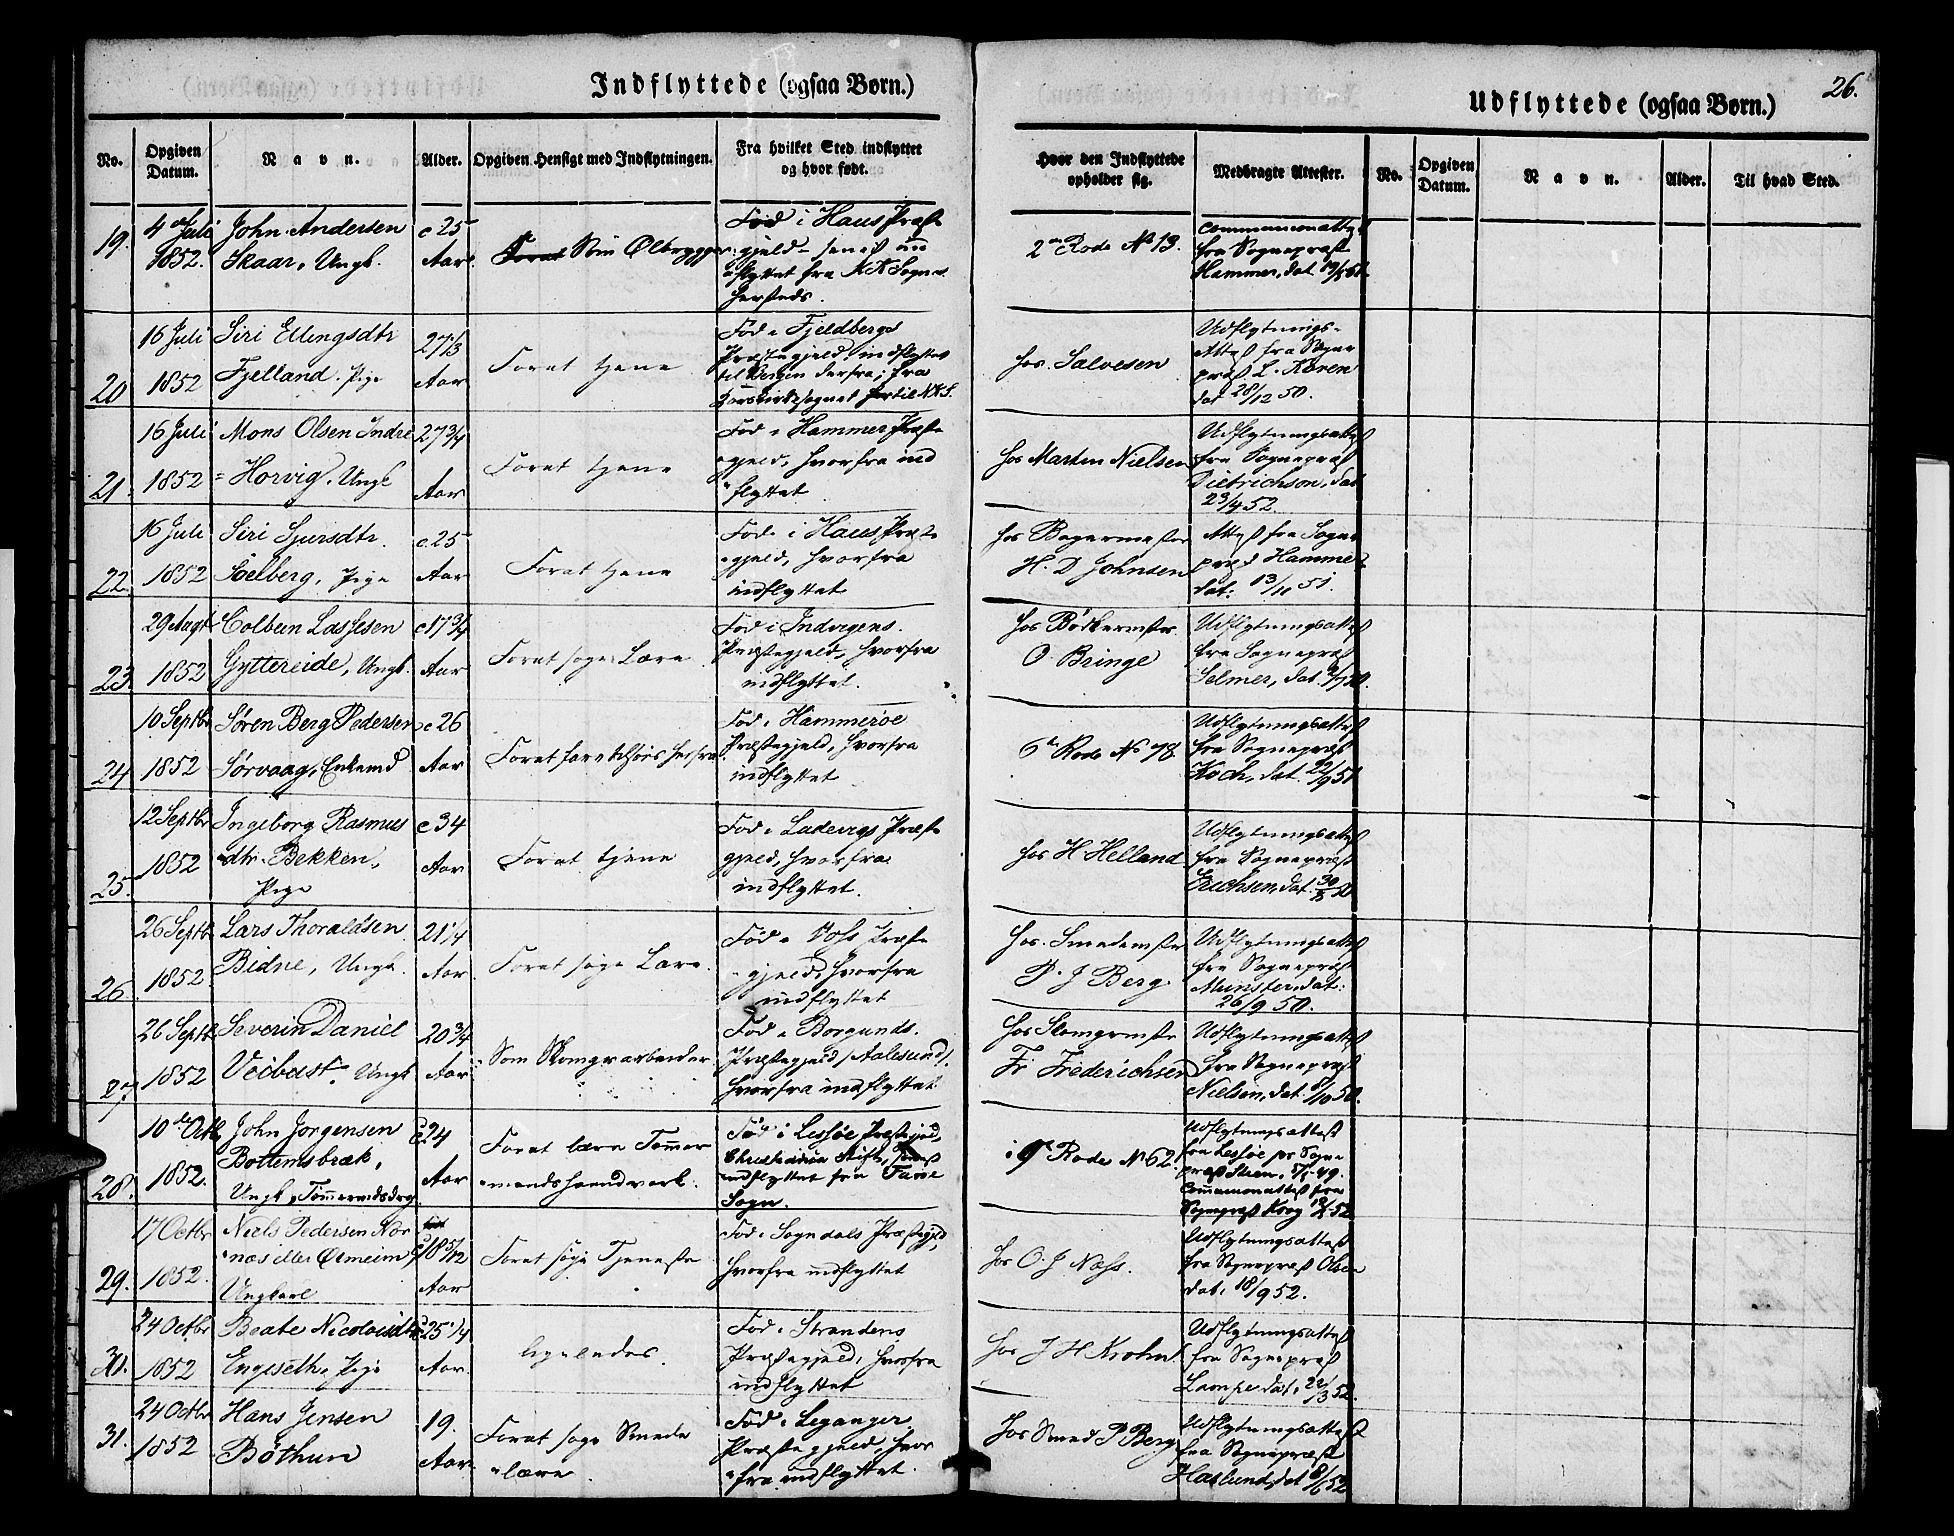 Indflyttede (ogsaa Børn.)
Udflyttede (ogsaa Børn.)
26.
No.
Opgiven Datum.
Navn.
Alder.
Opgiven Hensigt med Indflytningen.
Fra hvilket Sted indflyttet og hvor født.
Hvor den Indflyttede opholder sig.
Medbragte Attester.
No.
Opgiven Datum.
Navn.
Alder.
Til hvad Sted.
19.
4de Juli
1852.
John Andersen
Skaar, Ungk.
c 25
Aar
Som Ølbrygger
Fød i Haus Præste
gjeld
flyttet fra NK Sogne
2den Rode No 13.
Communionattest
fra Sognepræst
Hammer, dat.
20
16 Juli
1852
Siri Ellingsdtr
Fjelland. Pige
27 1/3
Aar
Forat tjene
Fød i Fjeldbergs
Præstegjeld, indflyttet
til Bergen derfra; fra
Korskirkesognet hertil NKS.
Hos Salvesen
Udflytnings-
Attest fra Sogne
præst L. Koren
dat 28/12 50.
21.
16 Juli
1852
Mons Olsen Indre
Horvig. Ungk
27 3/4
Aar
Forat tjene
Fød i Hammer Præste
gjeld, hvorfra ind
flyttet
Hos Marten Nielsen
Udflytningsattest
fra Sognepræst
Dietrichson, dat
23/4 52.
22.
16 Juli
1852
Siri Sjursdtr.
Söelberg, Pige
c. 25
Aar
Forat tjene
Fød i Haus Præste
gjeld, hvorfra
indflyttet
Hos Bagermester
H. D Johnsen
Attest fra Sogne
præst Hammer
dat: 13/10 51.
23.
29 Augt
1852
Colbein Lassesen
Gyttereide, Ungk.
c 17 3/4
Aar
Forat søge Lære
Fød i Indvigens
Præstegjeld, hvorfra
indflyttet.
Hos Bödkermster.
O. Bringe
Udflytningsattest
fra Sognepræst
Selmer, dat.
24
10 Septbr
1852
Søren Berg Pedersen
Sørvaag, Enkemd
c 26
Aar
Forat fare tilsøes herfra
Fød i Hammerøe
Præstegjeld, hvorfra
indflyttet
6te Rode No 78
Udflytningsattest
fra Sognepræst
Koch, dat. 22/9 51
25.
12 Septbr
1852
Ingeborg Rasmus
dtr. Bekken,
Pige
c 34
Aar
Forat tjene
Fød i Ladevigs Præste
gjeld, hvorfra
indflyttet.
Hos H. Helland
Udflytningsattest
fra Sognepræst
Erichsen, dat.
26
26 Septb
1852
Lars Thoraldsen
Bidne, Ungk.
21 1/4
Aar
Forat søge Lære.
Fød i Voss Præste
gjeld, hvorfra
indflyttet
Hos Smedemster
P. J Berg
Udflytningsattest
fra Sognepræst
Munster, dat:
26/9 50.
27
26 Septb
1852
Severin Daniel
Veibust, Ungk
20 3/4
Aar
Som Skomgrarbeider
Fød i Borgunds
Præstegjeld (Aalesund),
hvorfra indflyttet
Hos Skomgrmster
Fr Frederichsen
Udflytningsattest
fra Sognepræst
Nielsen, dat.
28.
10de Octb
1852.
John Jorgensen
Bottemsbræk,
Ungk, Tømermdsdrg
24
Aar
Forat lære Tømer
mandshaandværk.
Fød i Lessöe Præstegjed,
Christiania Stift,
indflyttet fra
Sogn.
i 9de Rode No 62.
Udflytningsattest
fra Lessöe pr Sogne
præst
Communionattest fra
Sognepræst Krog
29.
17 Octbr
1852.
Niels Pedersen Nor
næs eller Ørneim
Ungkarl
18 5/12
Aar
Forat søge Tjeneste
Fød i Sogndals Præstegjed,
hvorfra indflyttet
Hos O. J Næss.
Udflytningsattest
fra Sognepræst Olsen
dat. 18/9 52.
30.
24 Octbr
1852
Beate Nicolaisdtr
Engeseth, Pige
25 1/4
Aar
ligeledes.
Fød i Strandens
Præstegjeld, hvorfra
indflyttet
Hos J H Krohn
Udflytningsattest
fra Sognepræst
Lampe dat. 22/3 52.
31.
24 Octbr
1852
Hans Jensen
Böthun
19.
Aar
Forat søge Smede
lære.
Fød i Leganger
Præstegjeld, hvor
fra indflyttet.
Hos Smed P Berg
Udflytningsattest
fra Sognepræst
Haslund, dat